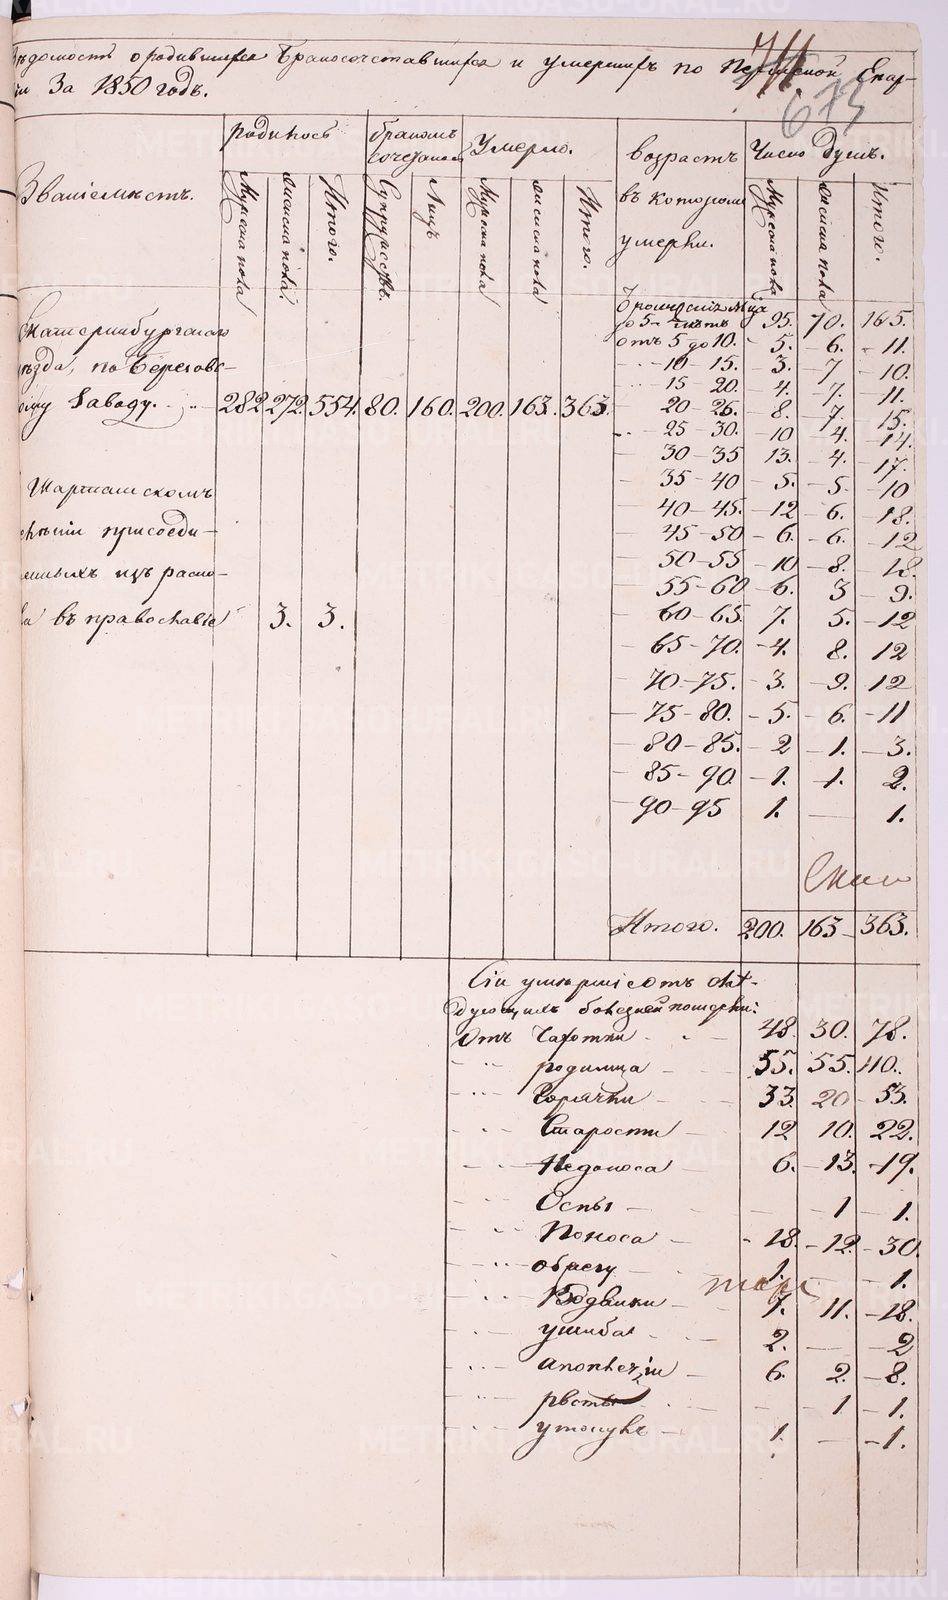 Ведомость о родившихся бракосочетавшихся и умершихъ по Пермской Епар-
хіи За 1850 годъ.
673
Званіе мѣстъ.
родилось
бракомъ сочеталось
Умерло.
возрастъ въ которомъ умерли.
Число душъ.
Мужеска пола
женска пола.
Итого.
Супружествъ.
Лицъ
Мужеска пола
женска пола
Итого.
Мужеска пола
женска пола
Итого.
Екатеринбургскаго
уѣзда, по Березовс-
кому Заводу. 282 272. 554. 80. 160. 200. 163. 363.
Шарташскомъ
присоеди-
изъ раско-
ла въ православіе 3. 3.
до 5 лѣтъ 95. 70. 165.
отъ 5 до 10. 5. 6. 11.
10 - 15. 3. 7 10.
15 20. 4. 7. 11.
20 - 26. 8. 7. 15.
25 - 30. 10 4. 14.
30 - 35 13. 4. 17.
35 - 40 5. 5. 10
40 - 45. 12 6. 18.
45 - 50 6. 6. 12
50 - 55 10 8. 18.
55 - 60 6. 3 9.
60 - 65. 7. 5. 12
65 - 70. 4. 8. 12
70 - 75. 3. 9. 12
75 - 80. 5. 6. 11
80 - 85. 2 1. 3.
85 - 90. 1. 1. 2.
90 - 95 1. — 1.
Итого. 200. 163 363.
Сіи умершіе отъ слѣ-
дующихъ болезней померли:
Отъ Чахотки 48. 30. 78.
родимца 55. 55. 110.
Горячки 33. 20 53.
Старости 12 10. 22.
Недоноса 6. 13. 19.
Оспы 1 1.
Поноса 18. 12. 30.
1. — 1.
Водянки 7. 11. 18.
ушиба 2. — 2
апоплезіи 6. 2. 8.
рвоты 1 1.
утонувъ 1. — 1.
METRIKI.GASO-URAL.RU